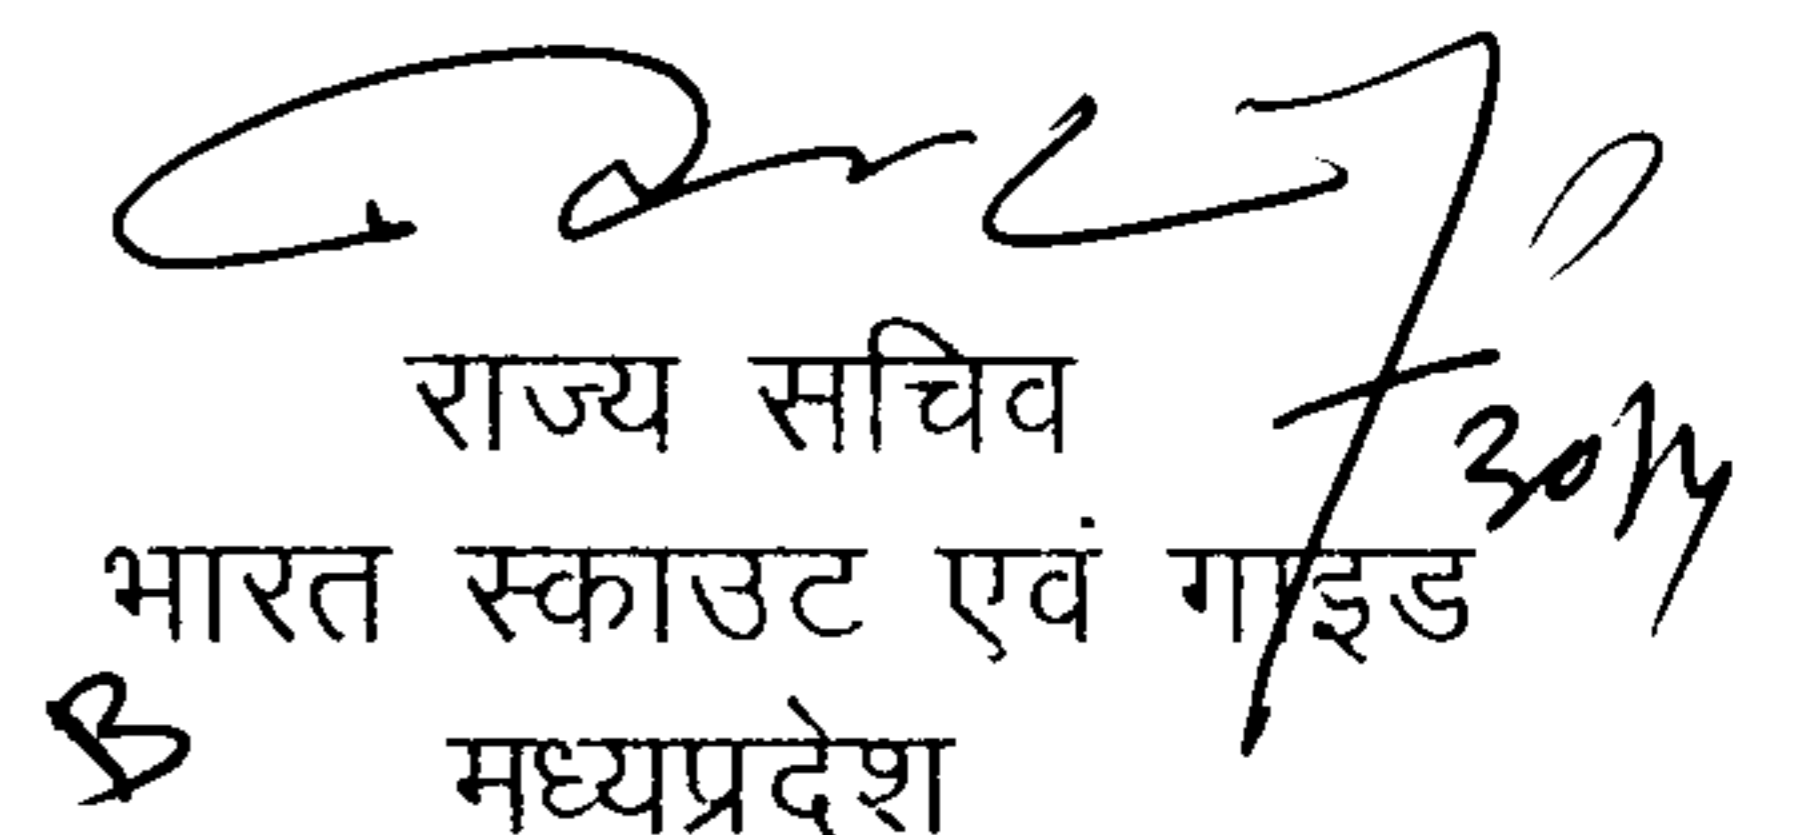 राज्य सचिव
भारत स्काउट एवं गाइड
B
मध्यप्रदेश